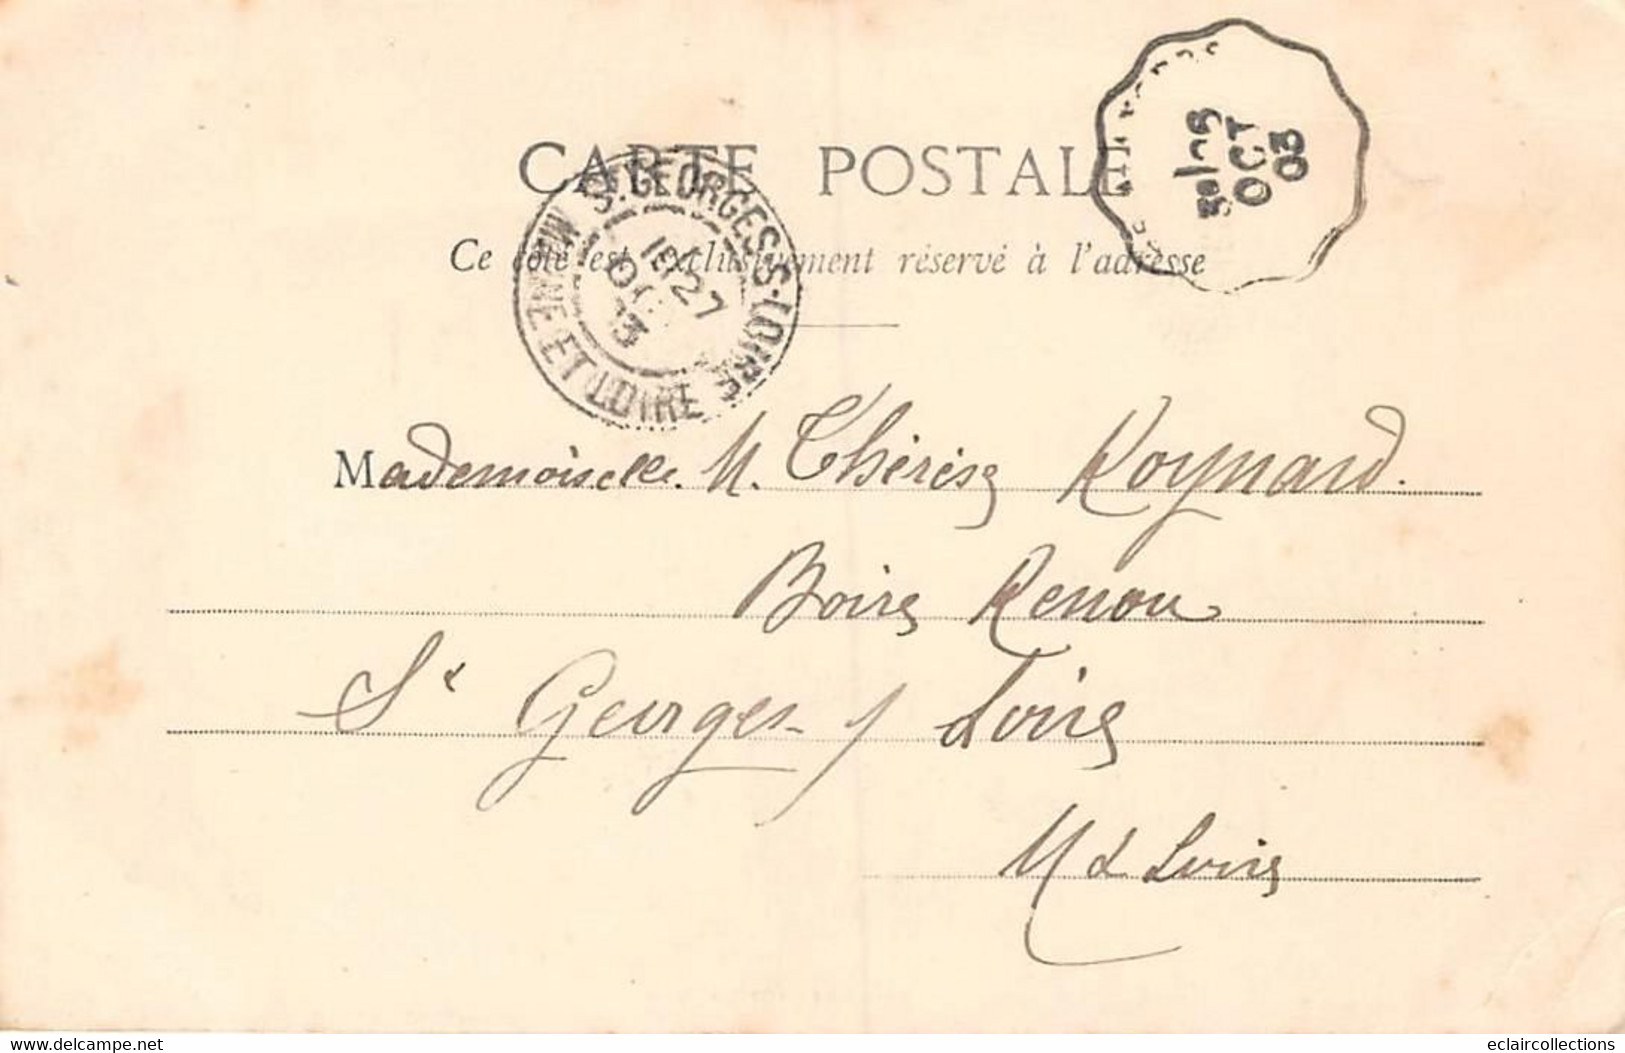 CARTE POSTALE
Ce côté est exclusivement réservé à l'adresse
ST GEORGES-S-LOIRE
27
OCT
03
MAINE ET LOIRE
OCT
03
Mademoiselle M. Thérèse Roynard.
Boire Renou
St Georges s/ Loire
M & Loire
www.delcampe.net
eclaircollections